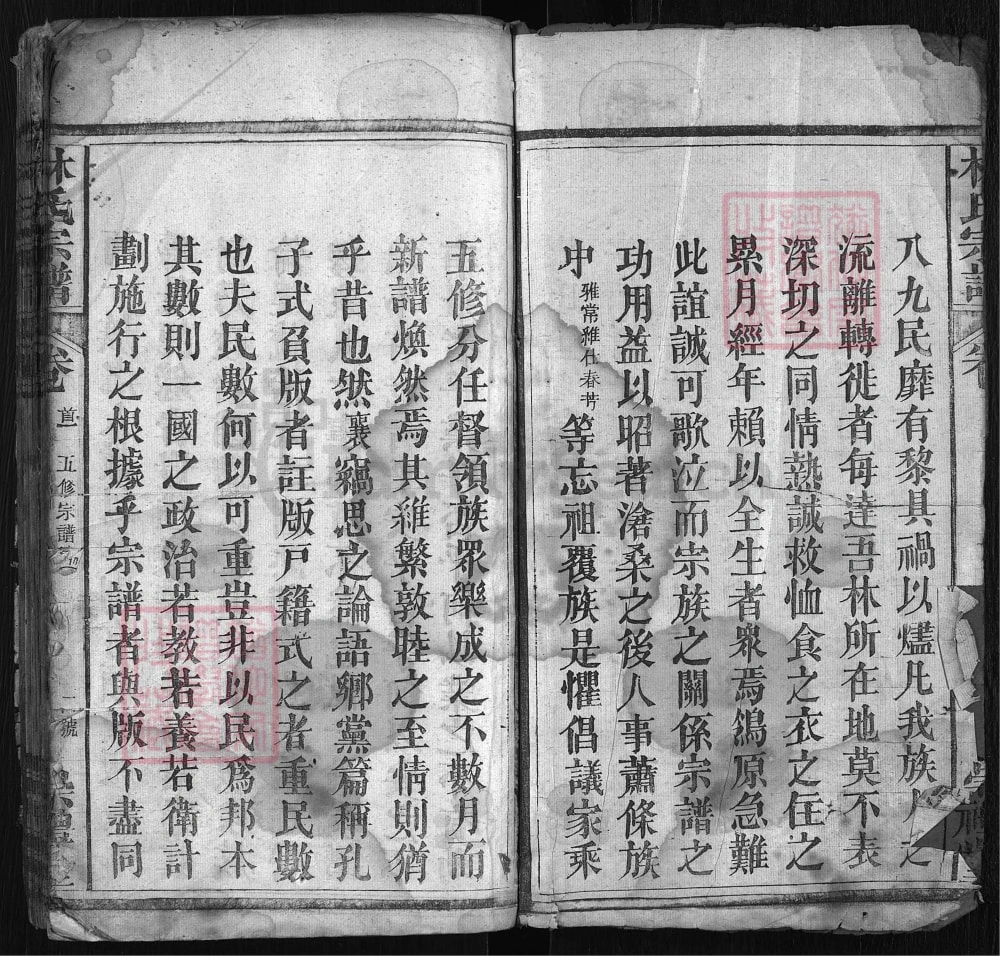 八九民靡有黎具禍以燼凡我族人之
流離轉徙者每達吾林所在地莫不表
深切之同情熱誠救恤食之衣之住之
累月經年賴以全生者衆焉鴒原急難
此誼誠可歌泣而宗族之關係宗譜之
功用益以昭著滄桑之後人事蕭條族
中雅常維仕春芳等忘祖覆族是懼倡議家乘
五修分任督領族眾樂成之不數月而
新譜煥然焉其維繁敦睦之至情則猶
乎昔也然襄竊思之論語鄉黨篇稱孔
子式負版者註版戸籍式之者重民數
也夫民數何以可重豈非以民爲邦本
其數則一國之政治若教若養若衛計
劃施行之根據乎宗譜者與版不盡同
林氏宗譜 卷 首 五修宗譜序 二號